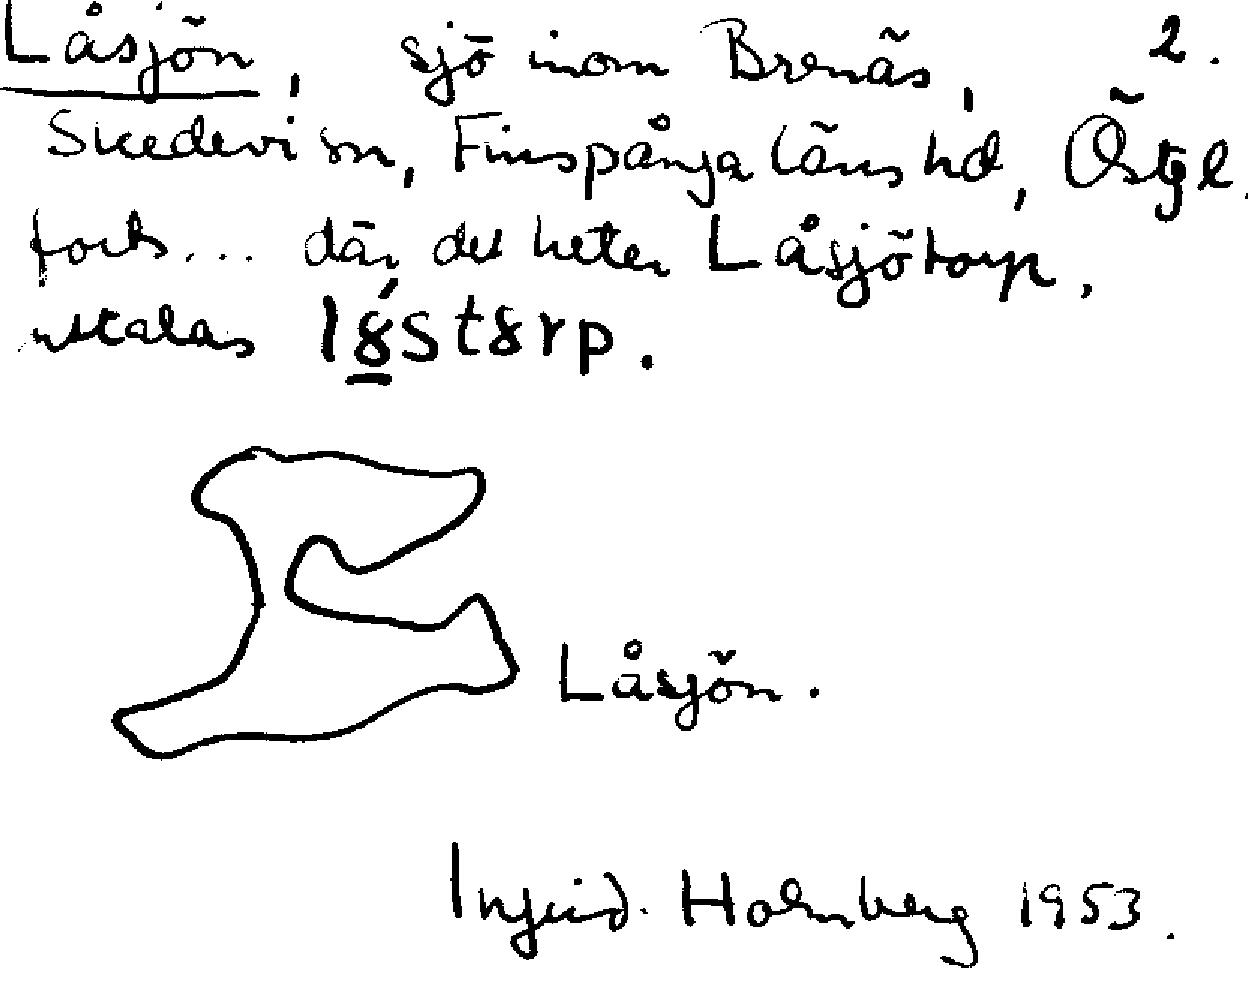 Låsjön, sjö inom Brenäs, 2.
Skedevi sn, Finspånga läns hd, Östgl.
forts... där det heter Låsjötorp,
uttalas lȣ́stȣrp.
Låsjön.
Ingrid Holmberg 1953.